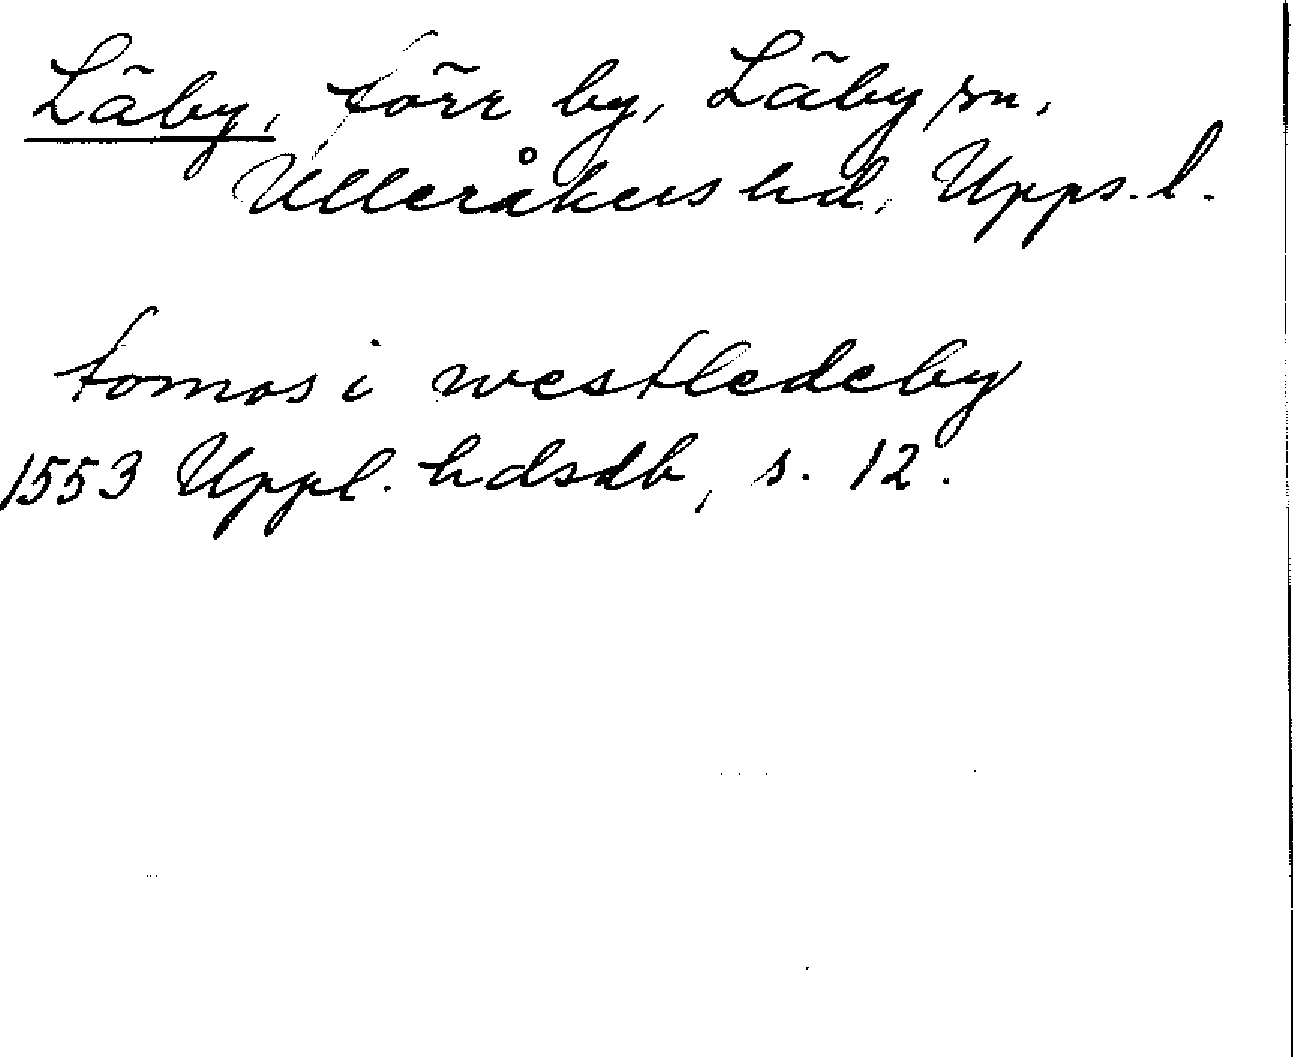 Läby, förr by, Läby sn,
Ulleråkers hd, Upps. l.
tomas i westledeby
1553 Uppl. hdsdb, s. 12.